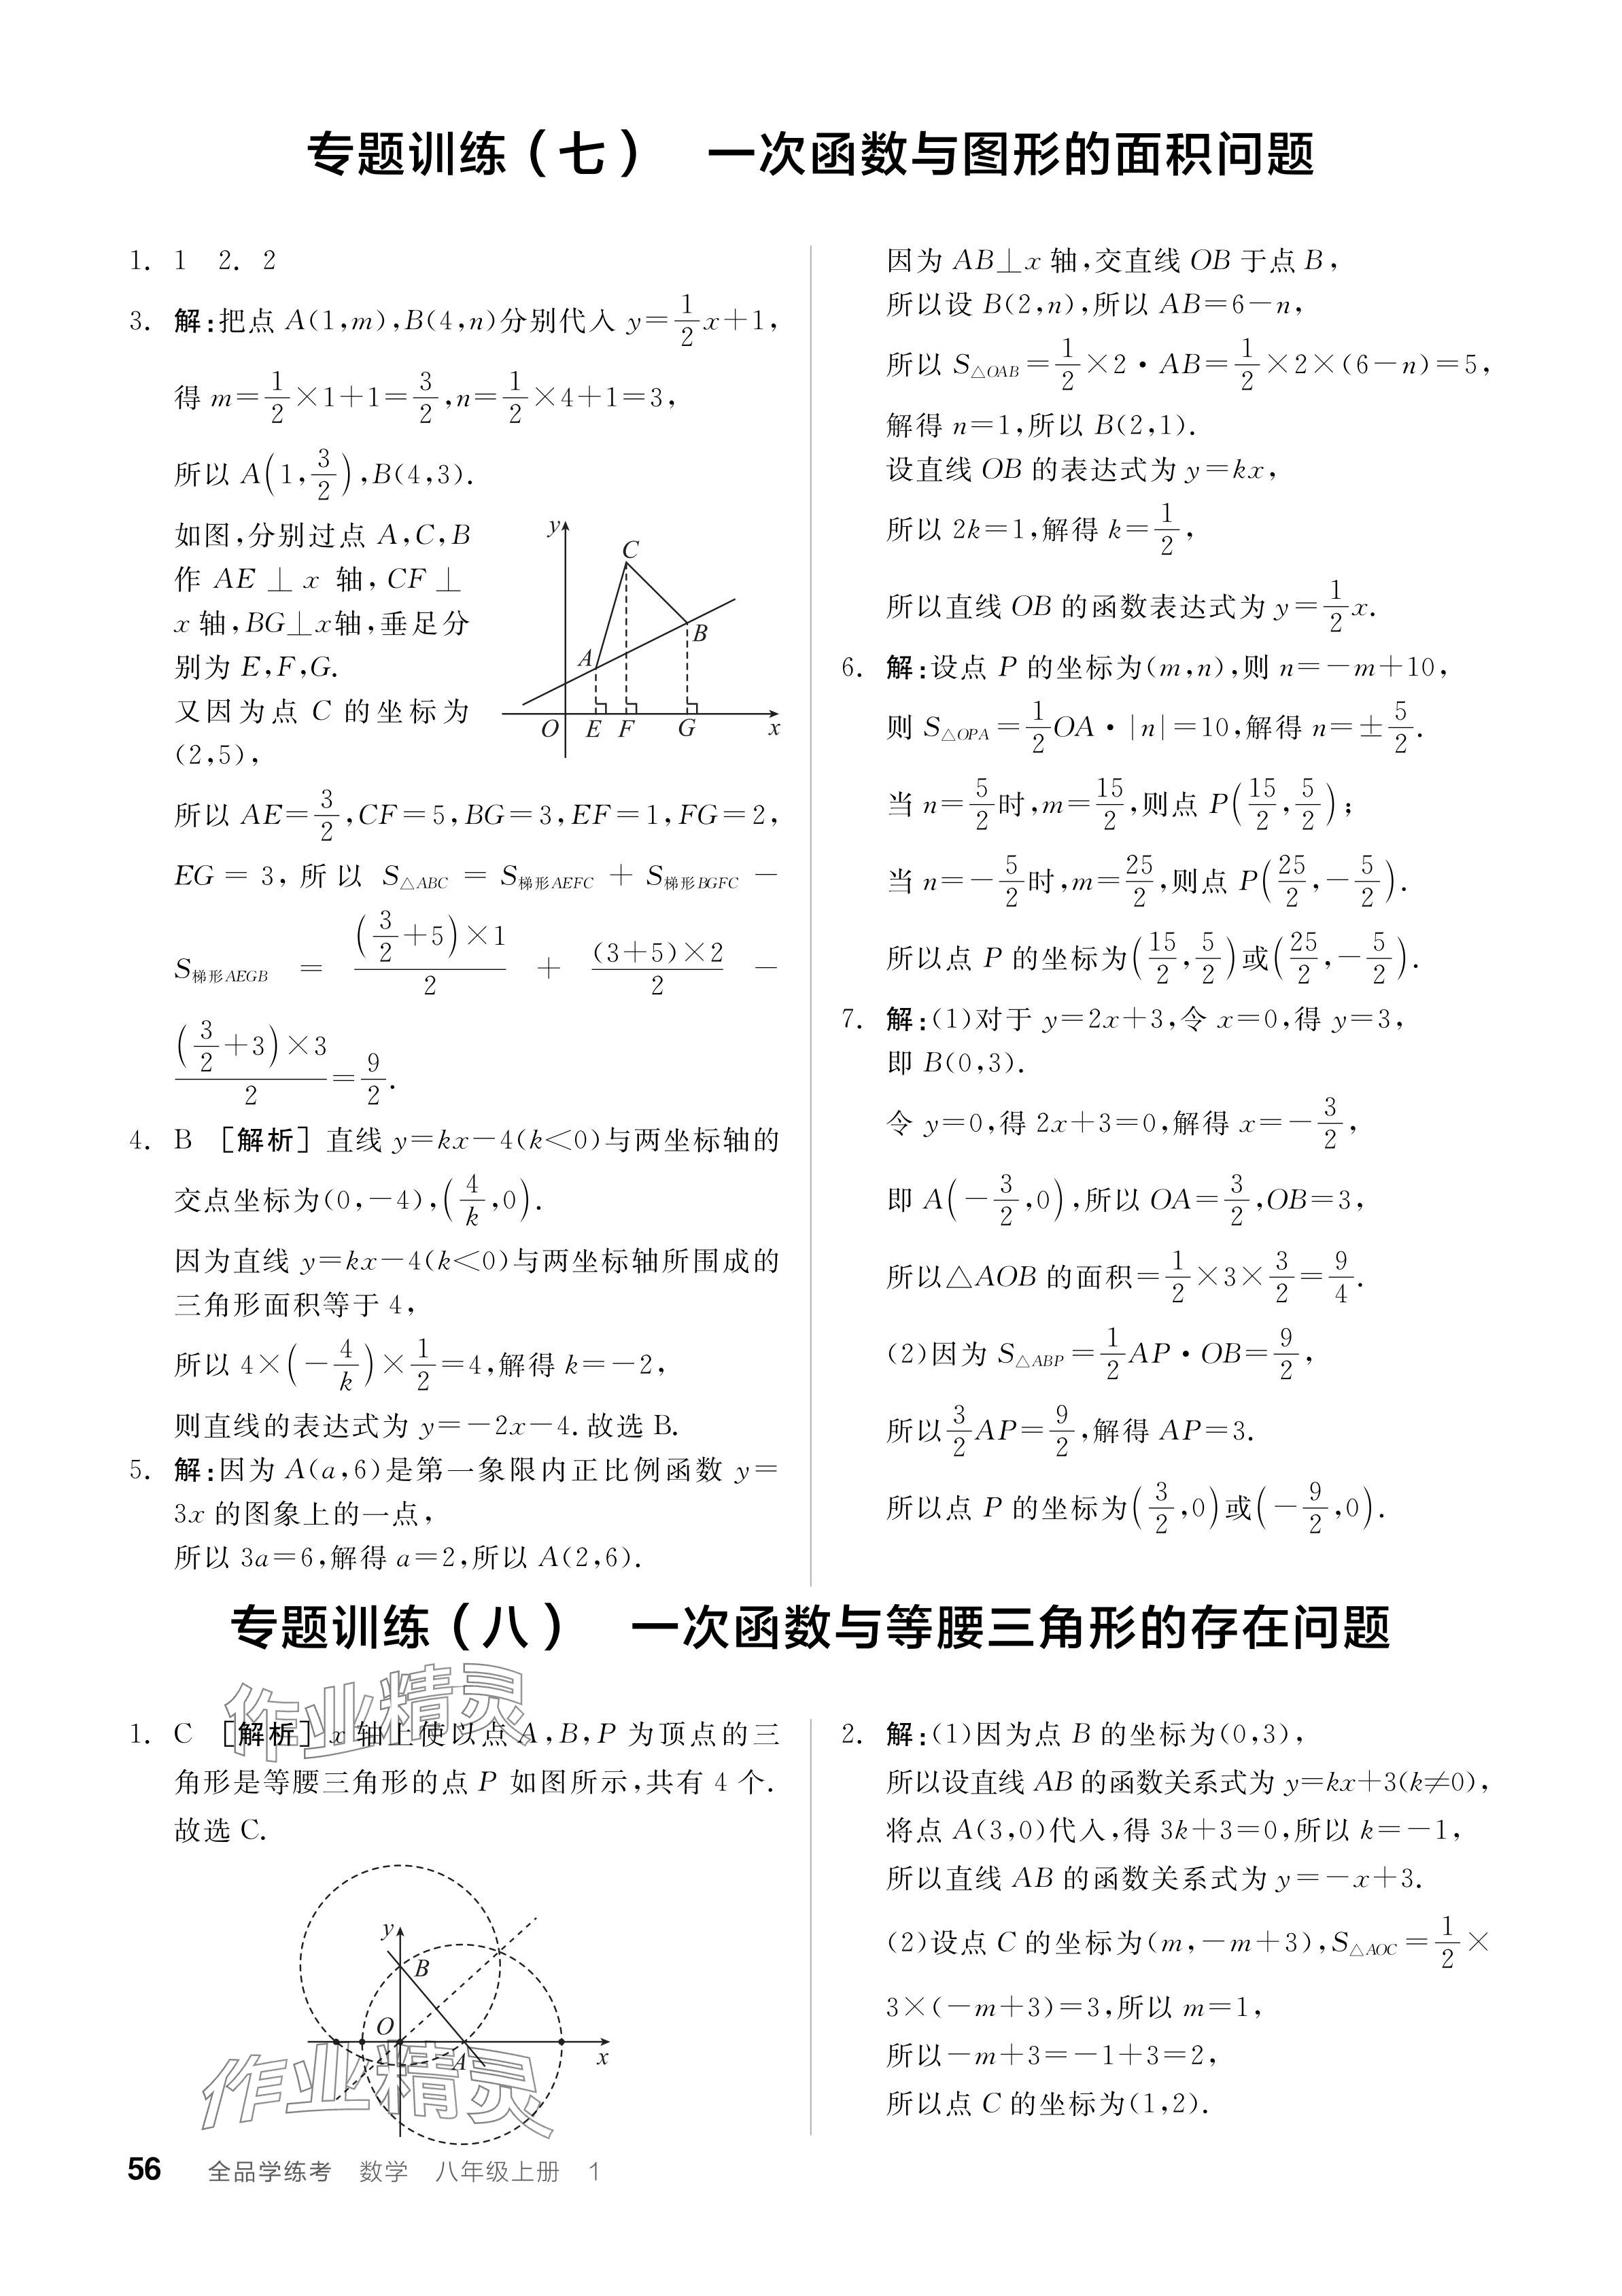 专题训练（七）　一次函数与图形的面积问题
1. 1　2. 2
3. 解:把点 A(1,m),B(4,n)分别代入 y=1/2x+1,
得 m=1/2×1+1=3/2,n=1/2×4+1=3,
所以 A(1,3/2),B(4,3).
如图,分别过点 A,C,B
作 AE⊥x 轴,CF⊥
x 轴,BG⊥x轴,垂足分
别为 E,F,G.
又因为点 C 的坐标为
(2,5),
y
C
B
A
O E F G x
所以 AE=3/2,CF=5,BG=3,EF=1,FG=2,
EG=3,所以 S△ABC=S梯形AEFC+S梯形BGFC-
S梯形AEGB=(3/2+5)×1/2+(3+5)×2/2-
(3/2+3)×3/2=9/2.
4. B [解析] 直线 y=kx-4(k<0)与两坐标轴的
交点坐标为(0,-4),(4/k,0).
因为直线 y=kx-4(k<0)与两坐标轴所围成的
三角形面积等于 4,
所以 4×(-4/k)×1/2=4,解得 k=-2,
则直线的表达式为 y=-2x-4.故选 B.
5. 解:因为 A(a,6)是第一象限内正比例函数 y=
3x 的图象上的一点,
所以 3a=6,解得 a=2,所以 A(2,6).
因为 AB⊥x 轴,交直线 OB 于点 B,
所以设 B(2,n),所以 AB=6-n,
所以 S△OAB=1/2×2·AB=1/2×2×(6-n)=5,
解得 n=1,所以 B(2,1).
设直线 OB 的表达式为 y=kx,
所以 2k=1,解得 k=1/2,
所以直线 OB 的函数表达式为 y=1/2x.
6. 解:设点 P 的坐标为(m,n),则 n=-m+10,
则 S△OPA=1/2OA·|n|=10,解得 n=±5/2.
当 n=5/2时,m=15/2,则点 P(15/2,5/2);
当 n=-5/2时,m=25/2,则点 P(25/2,-5/2).
所以点 P 的坐标为(15/2,5/2)或(25/2,-5/2).
7. 解:(1)对于 y=2x+3,令 x=0,得 y=3,
即 B(0,3).
令 y=0,得 2x+3=0,解得 x=-3/2,
即 A(-3/2,0),所以 OA=3/2,OB=3,
所以△AOB 的面积=1/2×3×3/2=9/4.
(2)因为 S△ABP=1/2AP·OB=9/2,
所以3/2AP=9/2,解得 AP=3.
所以点 P 的坐标为(3/2,0)或(-9/2,0).
专题训练（八）　一次函数与等腰三角形的存在问题
作业精灵
1. C [解析] x 轴上使以点 A,B,P 为顶点的三
角形是等腰三角形的点 P 如图所示,共有 4 个.
故选 C.
y
B
O
A
x
作业精灵
2. 解:(1)因为点 B 的坐标为(0,3),
所以设直线 AB 的函数关系式为 y=kx+3(k≠0),
将点 A(3,0)代入,得 3k+3=0,所以 k=-1,
所以直线 AB 的函数关系式为 y=-x+3.
(2)设点 C 的坐标为(m,-m+3),S△AOC=1/2×
3×(-m+3)=3,所以 m=1,
所以-m+3=-1+3=2,
所以点 C 的坐标为(1,2).
56　全品学练考　数学　八年级上册　1